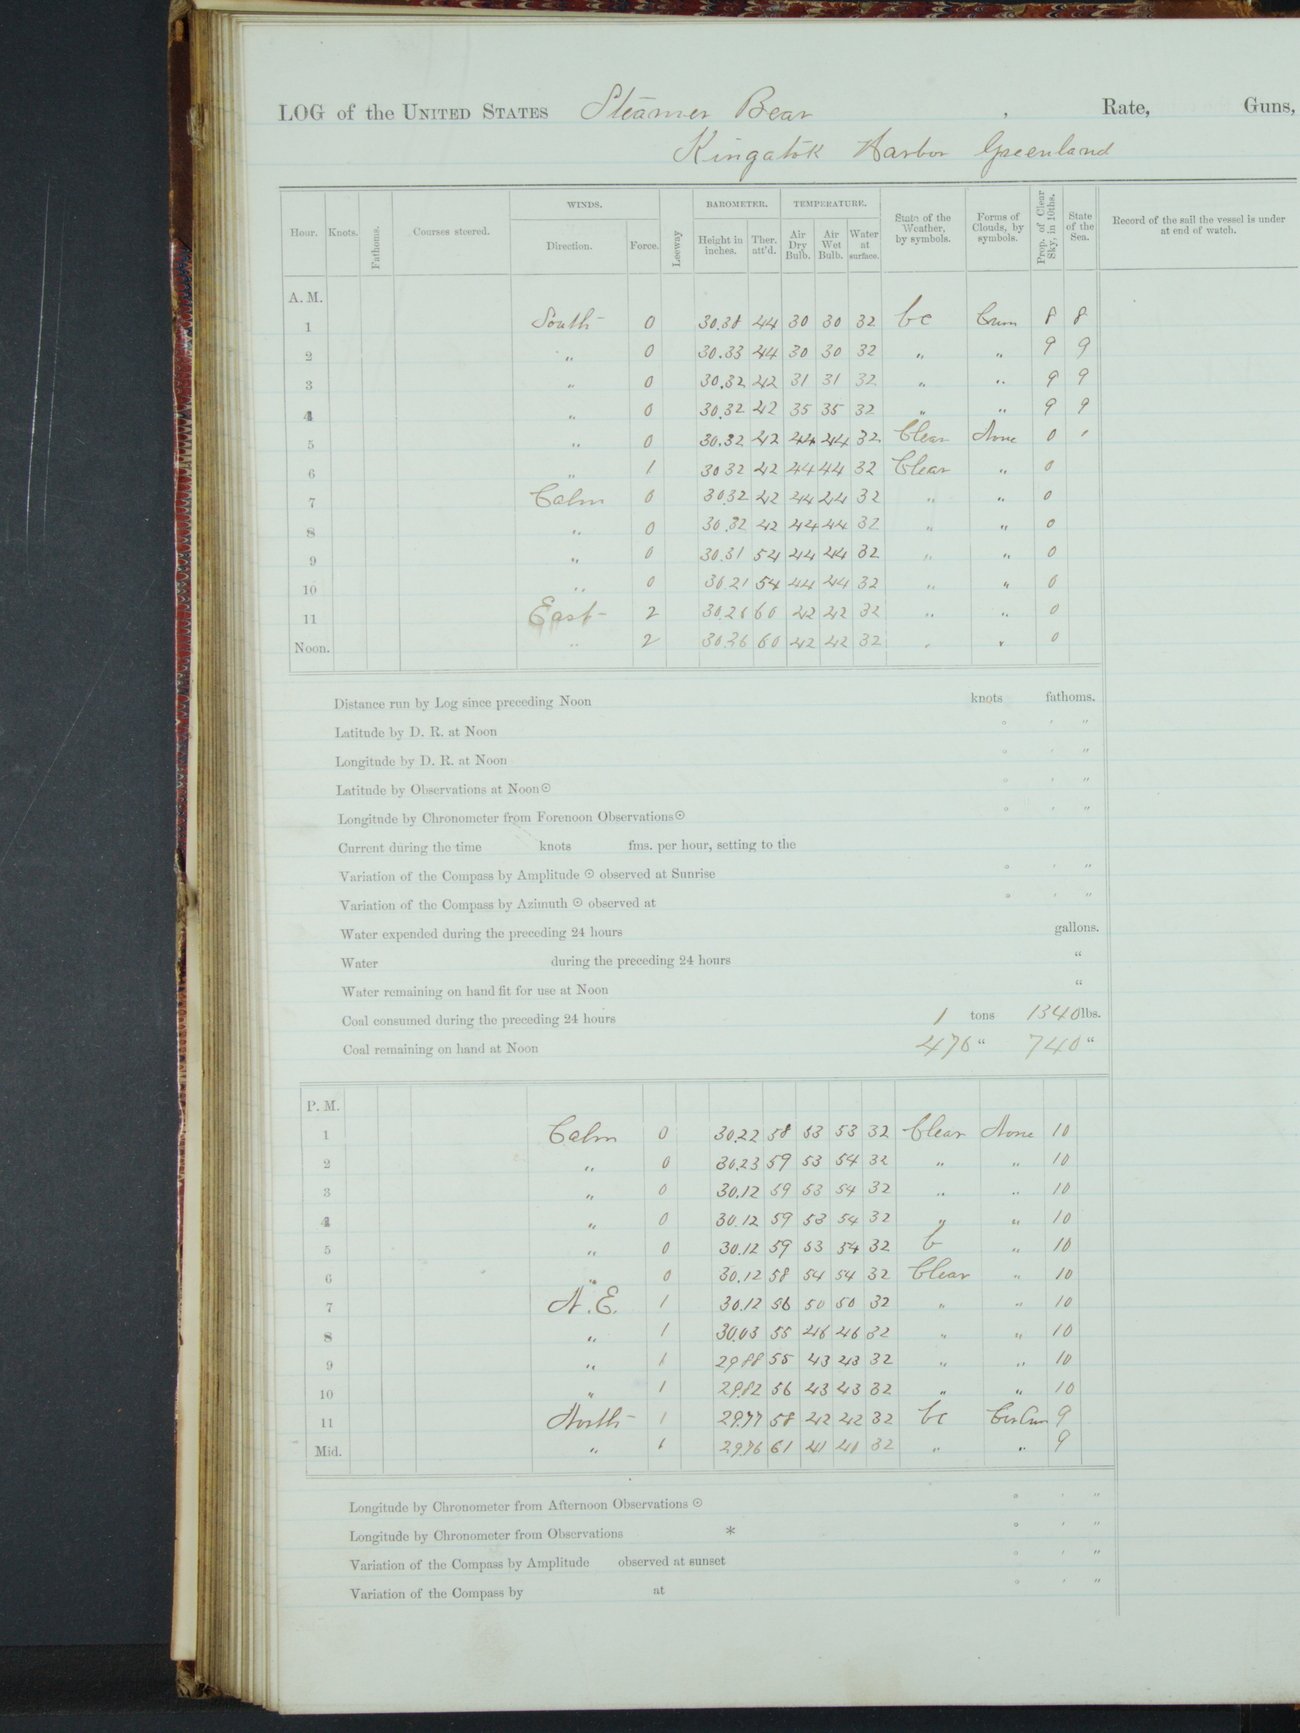 LOG of the UNITED STATES Steamer Bear , Rate, Guns,
Kingatok Harbor Greenland
Hour. Knots. Fathoms. Courses steered. WINDS. Direction. Force. Leeway BAROMETER. Height in inches. Ther. att'd. TEMPERATURE. Air Dry Bulb. Air Wet Bulb. Water at surface. State of the Weather, by symbols. Forms of Clouds, by symbols. Prop. of Clear Sky, in 10ths. State of the Sea. Record of the sail the vessel is under at end of watch.
A. M.
1 South 0 30.38 44 30 30 32 bc Cum 8 8
2 " 0 30.33 44 30 30 32 " " 9 9
3 " 0 30.32 42 31 31 32 " " 9 9
4 " 0 30.32 42 35 35 32 " " 9 9
5 " 0 30.32 42 44 44 32 Clear None 0 '
6 " 1 30 32 42 44 44 32 Clear " 0
7 Calm 0 30.32 42 44 44 32 " " 0
8 " 0 30.32 42 44 44 32 " " 0
9 " 0 30.31 54 44 44 32 " " 0
10 " 0 30.21 54 44 44 32 " " 0
11 East 2 30.26 60 42 42 32 " " 0
Noon. " 2 30.26 60 42 42 32 " " 0
Distance run by Log since preceding Noon knots fathoms.
Latitude by D. R. at Noon ° ' "
Longitude by D. R. at Noon ° ' "
Latitude by Observations at Noon ☉ ° ' "
Longitude by Chronometer from Forenoon Observations ☉ ° ' "
Current during the time knots fms. per hour, setting to the
Variation of the Compass by Amplitude ☉ observed at Sunrise ° ' "
Variation of the Compass by Azimuth ☉ observed at ° ' "
Water expended during the preceding 24 hours gallons.
Water during the preceding 24 hours "
Water remaining on hand fit for use at Noon "
Coal consumed during the preceding 24 hours 1 tons 1340 lbs.
Coal remaining on hand at Noon 476 " 740 "
P. M.
1 Calm 0 30.22 58 53 53 32 Clear None 10
2 " 0 30.23 59 53 54 32 " " 10
3 " 0 30.12 59 53 54 32 " " 10
4 " 0 30.12 59 53 54 32 " " 10
5 " 0 30.12 59 53 54 32 b " 10
6 " 0 30.12 58 54 54 32 Clear " 10
7 N.E. 1 30.12 56 50 50 32 " " 10
8 " 1 30.03 55 46 46 32 " " 10
9 " 1 29.88 55 43 43 32 " " 10
10 " 1 29.82 56 43 43 32 " " 10
11 North 1 29.77 58 42 42 32 bc Cir Cum 9
Mid. " 1 29.76 61 41 41 32 " " 9
Longitude by Chronometer from Afternoon Observations ☉ ° ' "
Longitude by Chronometer from Observations * ° ' "
Variation of the Compass by Amplitude observed at sunset ° ' "
Variation of the Compass by at ° ' "